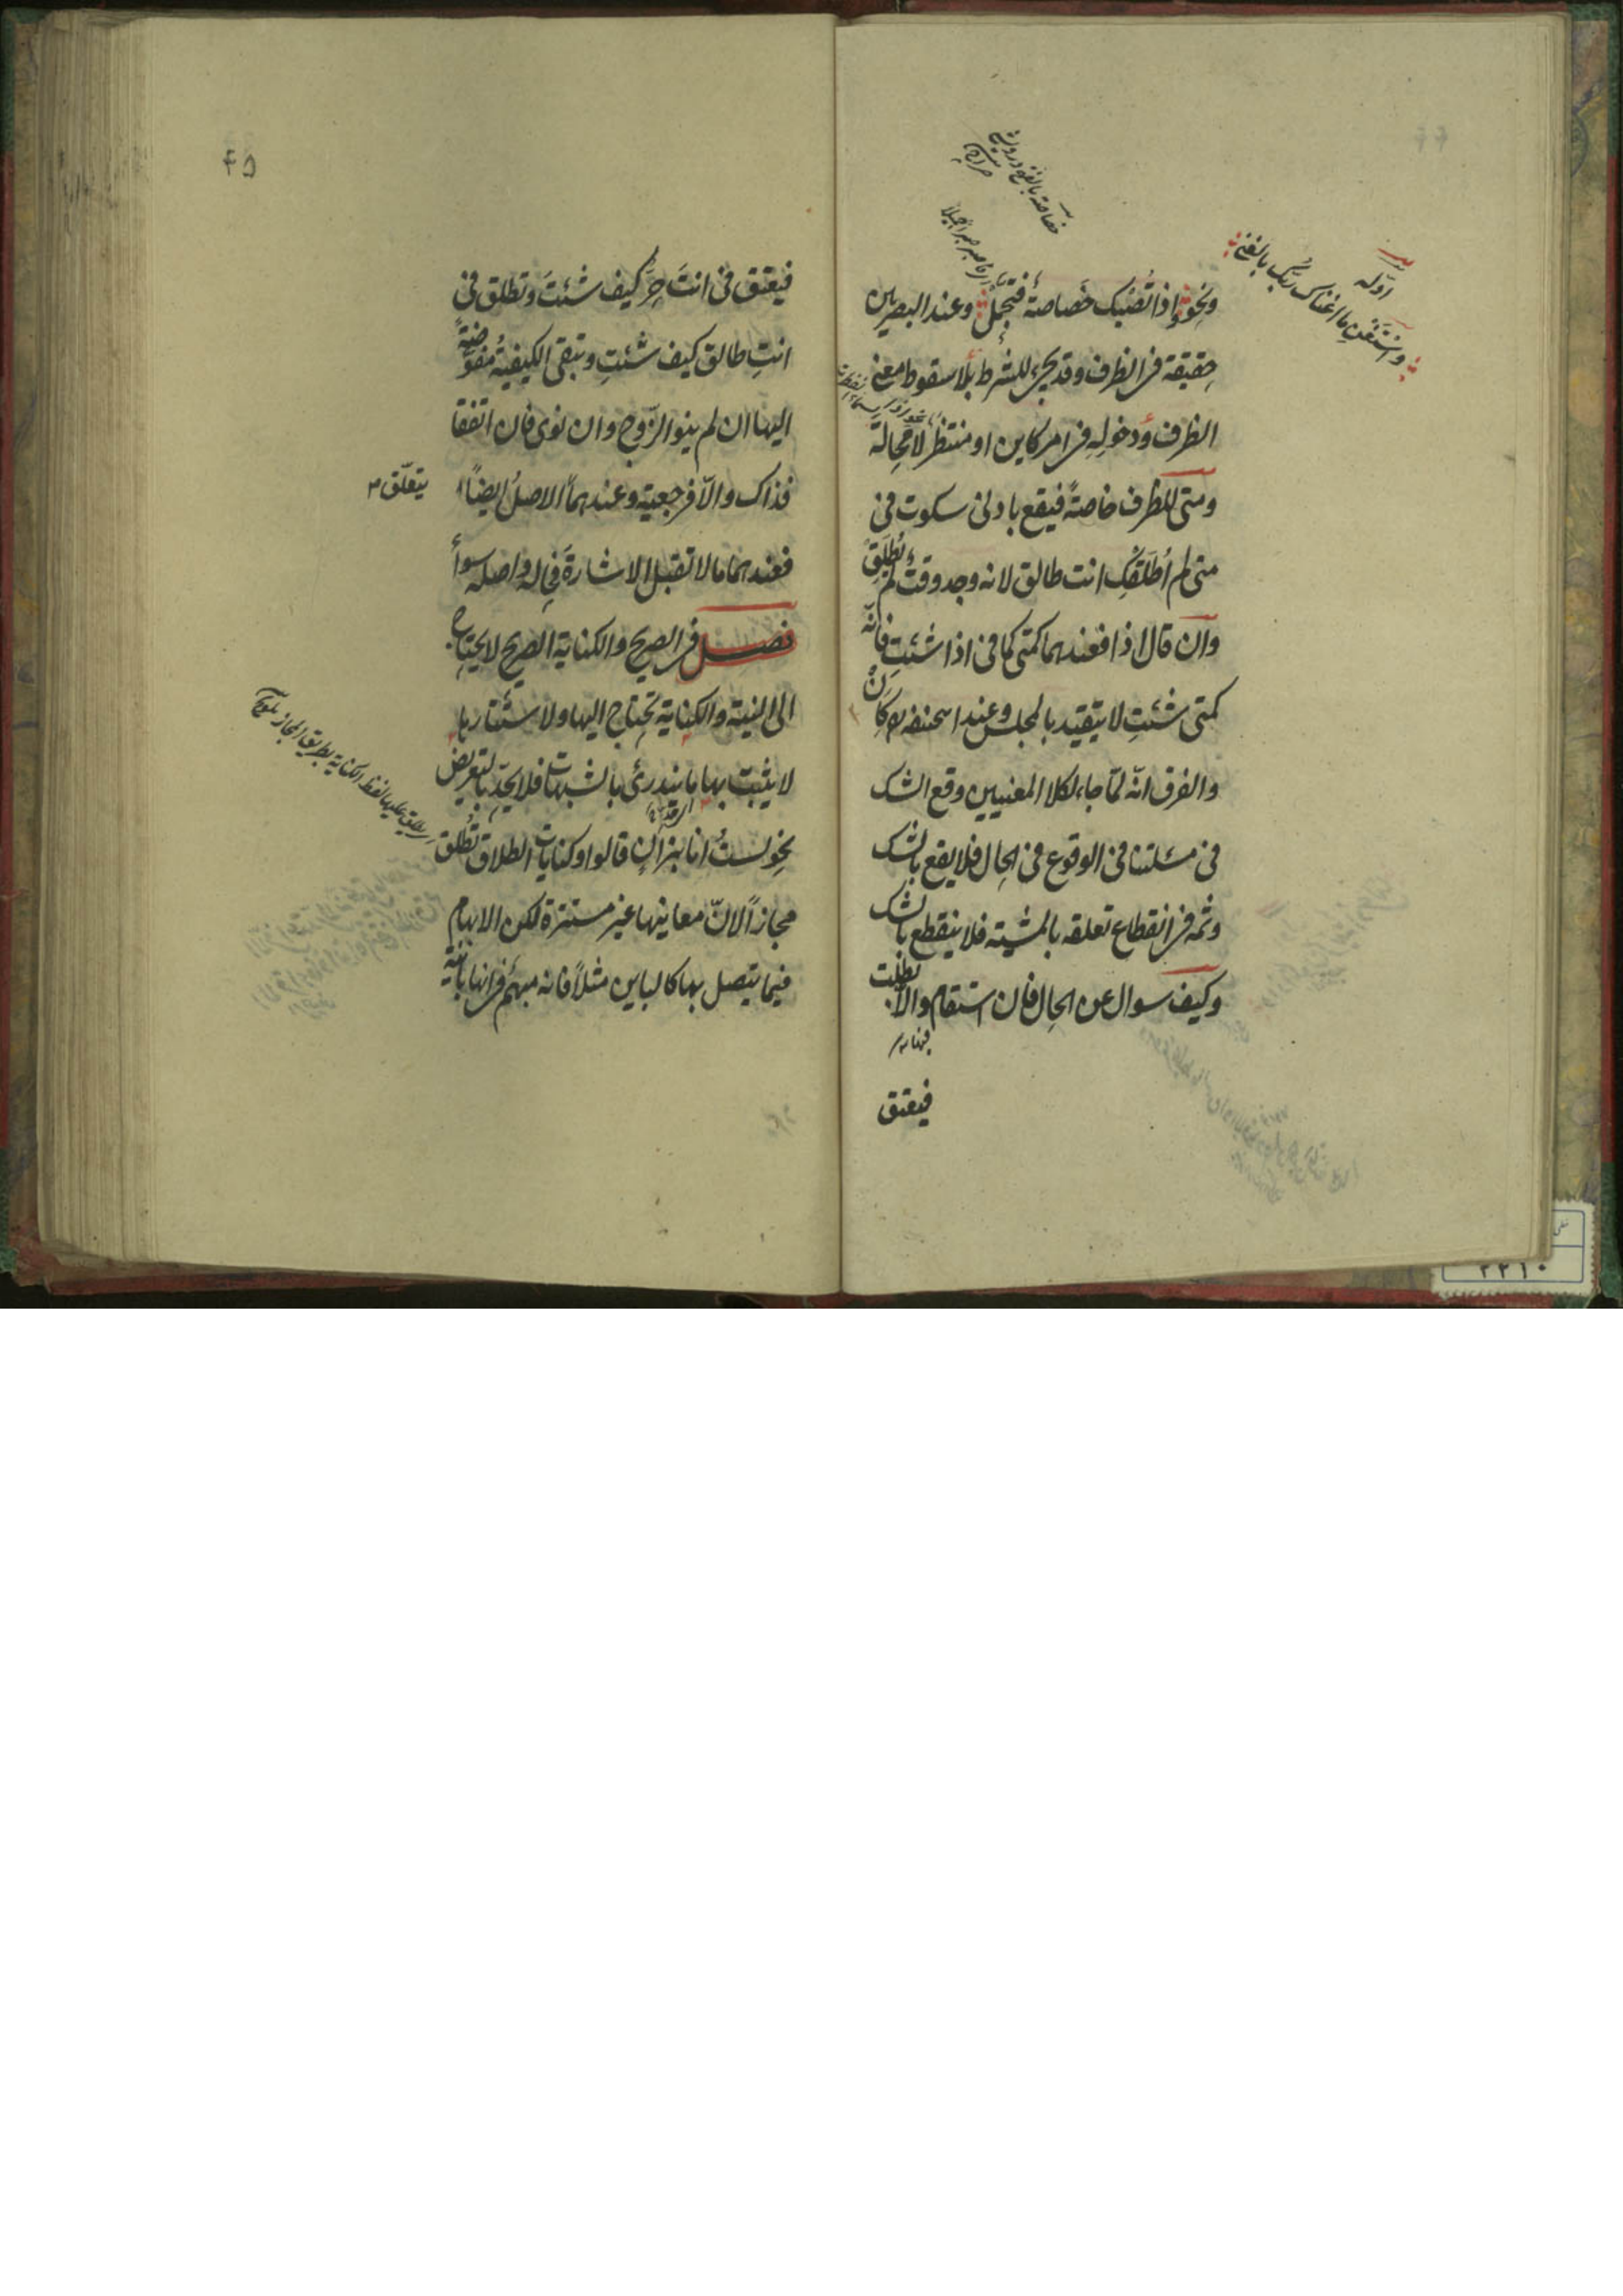 ونحو واذا تُصبك خَصاصة فتجمّل وعند البصريين
حقيقة فى الظرف وقد يجئ للشرط بلا سقوط معنى
الظرف ودخوله فى امر كاين او منتظر لا محالة
ومتى للظرف خاصةً فيقع بادنى سكوت فى
متى لم اُطلّقكِ انت طالق لانه وجد وقت لم تُطلّق
وان قال اذا فعندهما كمتى كما فى اذا شئتِ فانّه
كمتى شئتِ لا يتقيد بالمجلس وعند ابى حنيفة كان
والفرق انّه لمّا جاء لكلا المعنيين وقع الشك
فى مسئلتنا فى الوقوع فى الحال فلا يقع بالشك
وثمه فى انقطاع تعلقه بالمشيّة فلا ينقطع بالشك
وكيف سوال عن الحال فان استقام والّا بطلت
فيعتق
اوّله
واستغن ما اغناك ربّك بالغنى
خصاصة بالفتح درويشى
صراح
اى فاصبر صبرا جميلا
٤٥
فيعتق فى انتَ حرّ كيف شئتَ وتطلق فى
انتِ طالق كيف شئتِ وتبقى الكيفيّة مفوّضة
اليها ان لم ينو الزّوج وان نوى فان اتفقا
فذاك والّا فرجعية وعندهما الاصلُ ايضاً
يتعلّق
فعندهما ما لا تقبل الاشارةَ فحاله واصله سواءٌ
فصل فى الصريح والكناية الصريح لا يحتاج
الى النية والكناية تحتاج اليها ولاستتارها
لا يثبت بها ما يندرئ بالشبهات فلا يحدّ بالتعريض
نحو لستُ انا بزانٍ قالوا وكنايات الطلاق تُطلق
مجازاً لانّ معانيها غير مستترة لكن الابهام
فيما يتصل بها كالباين مثلاً فانه مبهم فى انها باينة
اى يطلق عليها لفظ الكناية بطريق المجاز تلويح
٢٢١٠